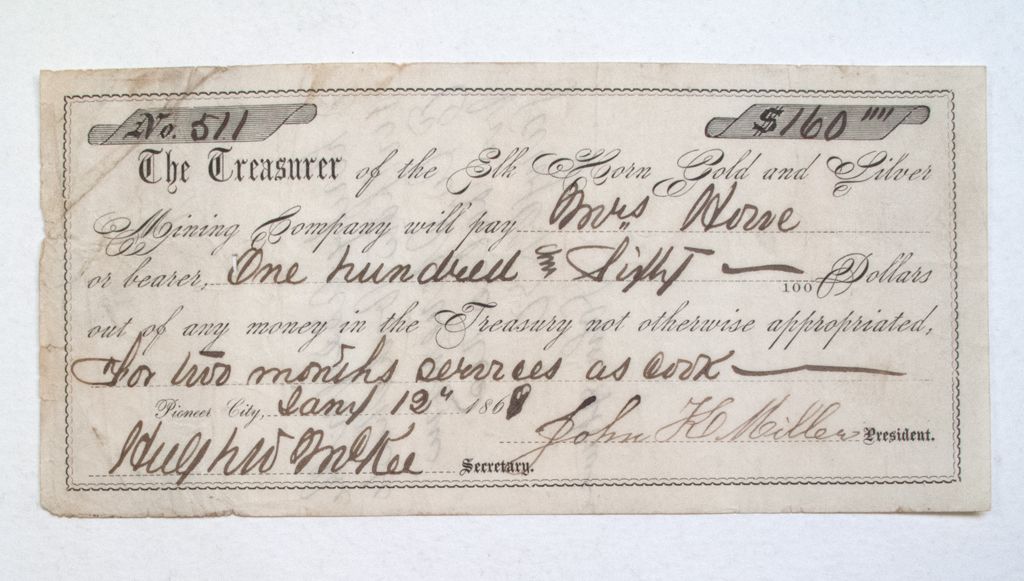 No. 511 $160 """
The Treasurer of the Elk Horn Gold and Silver
Mining Company will pay Mrs Howe
or bearer, One hundred Sixty — 100 Dollars
out of any money in the Treasury not otherwise appropriated,
For two months services as cook —
Pioneer City, Jany 12" 1868
John H Miller President.
Hugh W McKee Secretary.